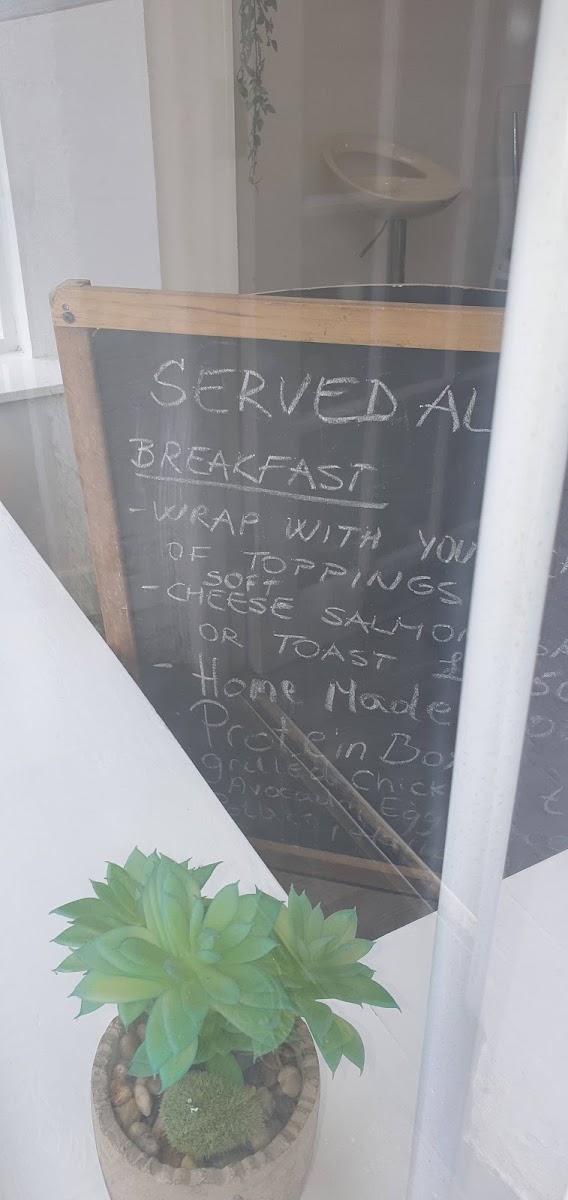 SERVED AL
BREAKFAST
- WRAP WITH YOU
OF TOPPINGS
SOFT
- CHEESE SALMO
OR TOAST £ 50
- Home Made
Protein Box
grilled Chick
Avocado Egg